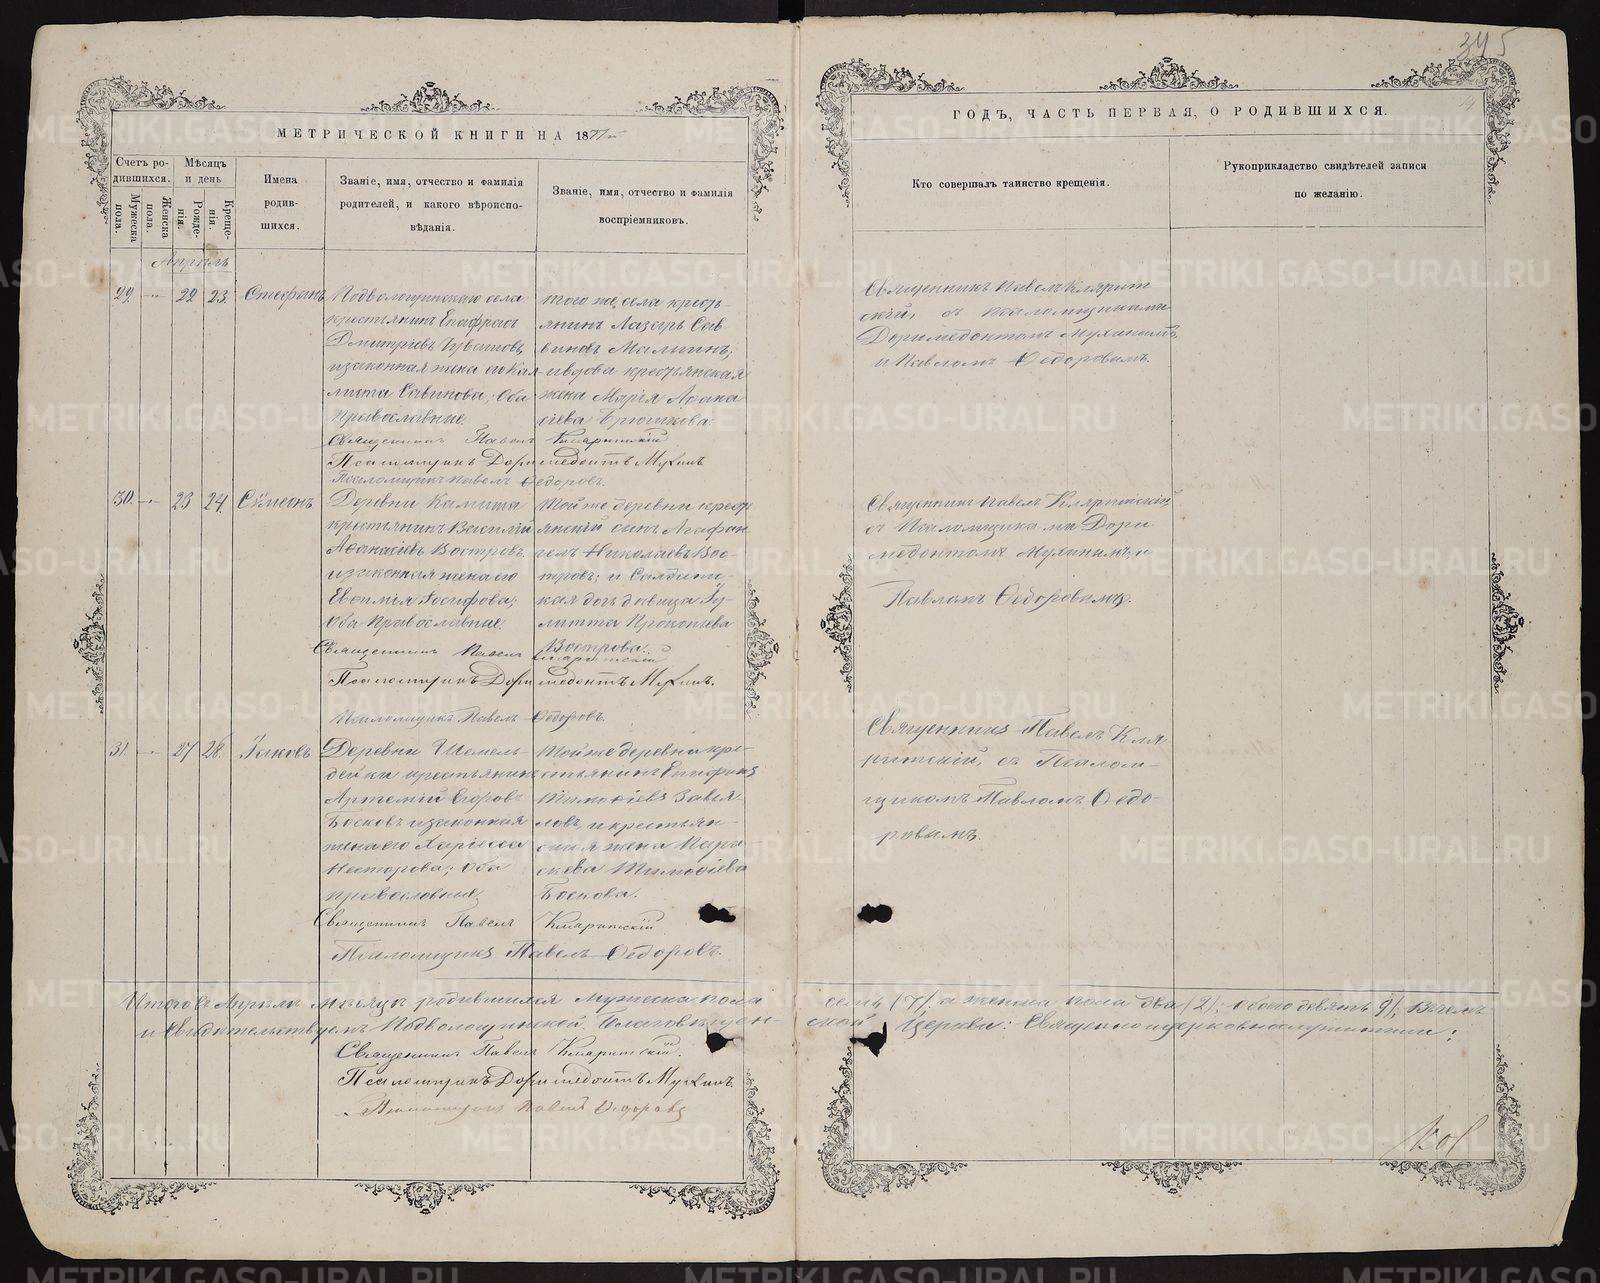 345
МЕТРИЧЕСКОЙ КНИГИ НА 1877й
ГОДЪ, ЧАСТЬ ПЕРВАЯ, О РОДИВШИХСЯ.
Счетъ ро-
дившихся.
Мужеска пола.
Женска пола.
Мѣсяцъ
и день
Рожде-
нія.
Креще-
нія.
Имена
родив-
шихся.
Званіе, имя, отчество и фамилія
родителей, и какого вѣроиспо-
вѣданія.
Званіе, имя, отчество и фамилія
воспріемниковъ.
Кто совершалъ таинство крещенія.
Рукоприкладство свидѣтелей записи
по желанію.
Апрѣль
29. 22 23 Стефанъ
Подволошинскаго села
крестьянинъ
Дмитріевъ
изаконная жена его
Савинова; Оба
православные.
того же села кресть-
янинъ Лазарь Сав-
виновъ
ивдова крестьянская
жена Марія Аѳана
сіева
Священникъ Павелъ
скій, съ псаломщиками
Доримедонтомъ Мухинымъ
и Павломъ Ѳедоровымъ.
Священникъ Павелъ
Псаломщикъ Доримедонтъ Мухинъ
Псаломщикъ Павелъ Ѳедоровъ.
30. 23 24. Сѵмеонъ
Деревни
крестьянинъ Василій
Аѳанасіевъ Востровъ
изаконная жена его
Евѳимія Іосифова;
Оба Православные.
Той же деревни кресть
янскій сынъ Агафан
гелъ Николаевъ Вос-
тровъ; и Солдатс-
кая дочь дѣвица Іу-
литта Прокопьева
Вострова.
Священникъ Павелъ
съ Псаломщиками Дори
медонтомъ Мухинымъ, и
Павломъ Ѳедоровымъ.
Священникъ Павелъ
Псаломщикъ Доримедонтъ Мухинъ.
Псаломщикъ Павелъ Ѳедоровъ.
31. 27 28. Іаковъ
Деревни Шемель-
дейки крестьянинъ
Артемій Егоровъ
Босковъ изаконная
жена его Харіесса
Несторова; Оба
православные;
Той же деревни кре-
стьянинъ
Тимоѳіевъ Завья-
ловъ, и крестьян-
ская жена Пара
скева Тимоѳіева
Боскова.
Священникъ Павелъ
ритскій, съ Псалом-
щикомъ Павломъ Ѳедо-
ровымъ.
Священникъ Павелъ
Псаломщикъ Павелъ Ѳедоровъ.
Итого въ Апрѣлѣ мѣсяцѣ родившихся Мужеска пола семь (7), а женска пола два (2); обоего девять 9); Въ чемъ
и Свидѣтельствуемъ Подволошинской Благовѣщенской Церкви: Священноцерковнослужители:
Священникъ Павелъ
Псаломщикъ Доримедонтъ Мухинъ.
Псаломщикъ Павелъ Ѳедоровъ
METRIKI.GASO-URAL.RU